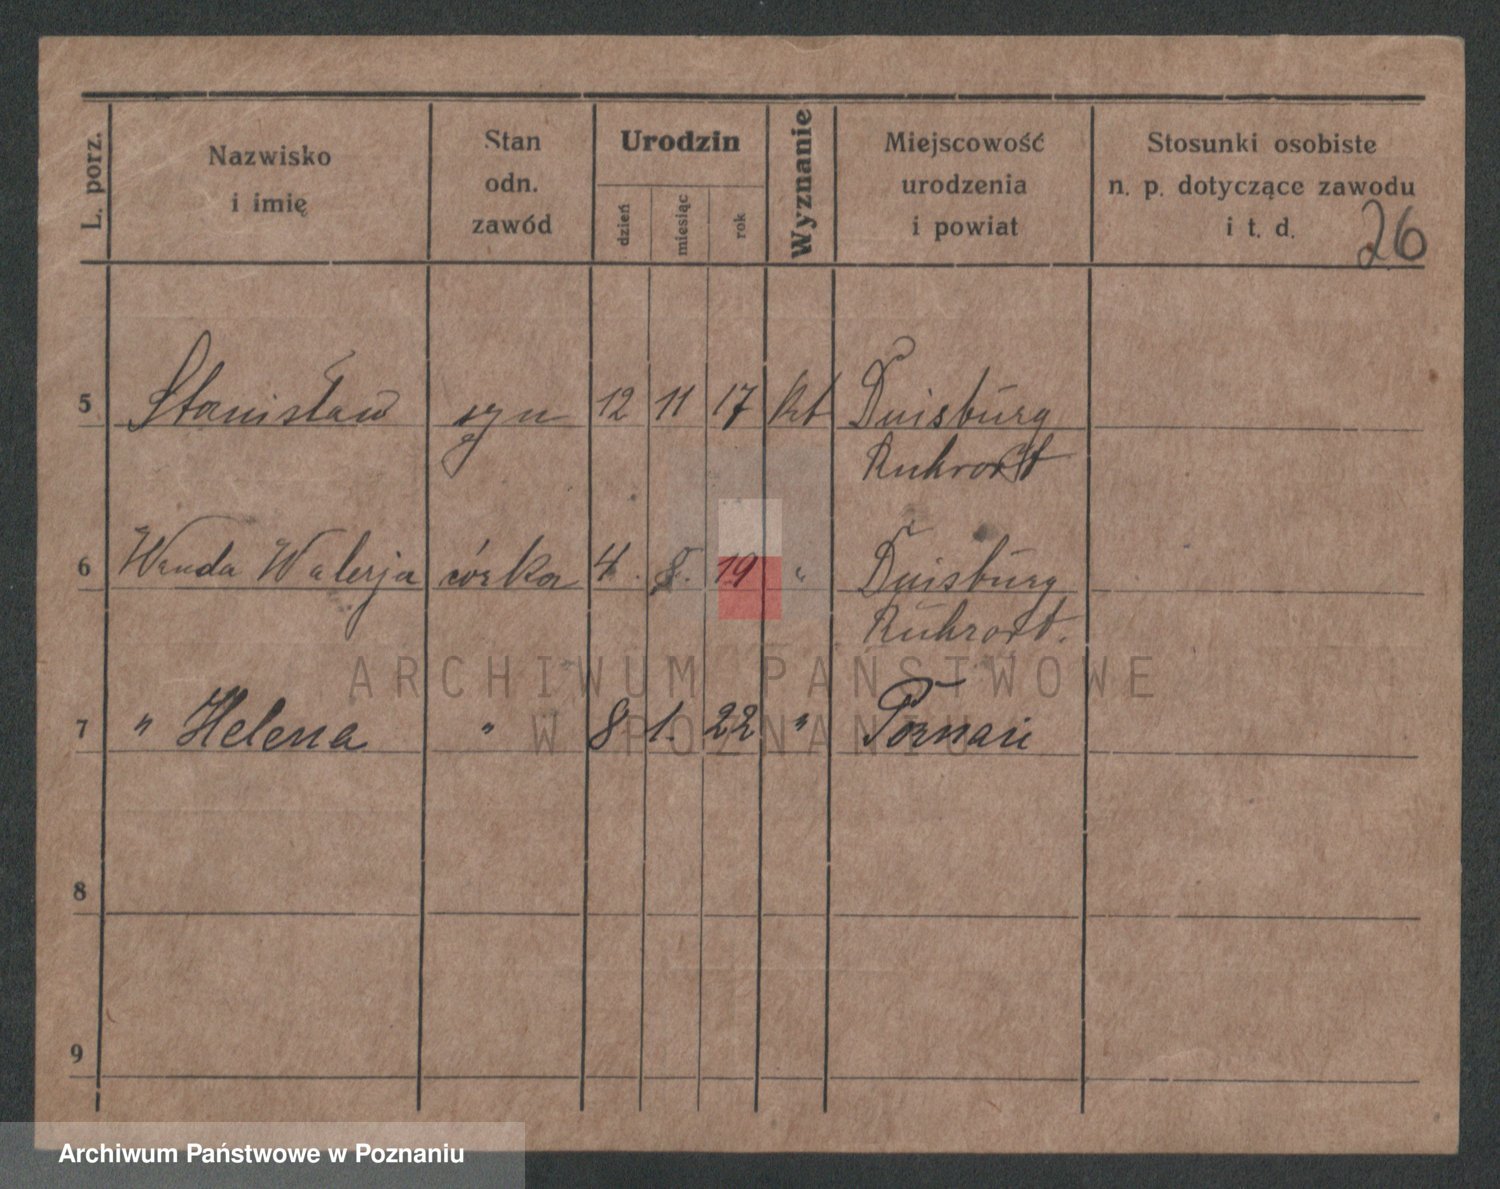 L. porz.
Nazwisko
i imię
Stan
odn.
zawód
Urodzin
dzień
miesiąc
rok
Wyznanie
Miejscowość
urodzenia
i powiat
Stosunki osobiste
n. p. dotyczące zawodu
i t. d.
26
5 Stanisław syn 12 11 17 kt Duisburg
Ruhrort
6 Wanda Walerja córka 4. 8. 19 " Duisburg
Ruhrort.
ARCHIWUM PAŃSTWOWE
7 " Helena " 8 1. 22 " Poznań
W POZNANIU
8
9
Archiwum Państwowe w Poznaniu